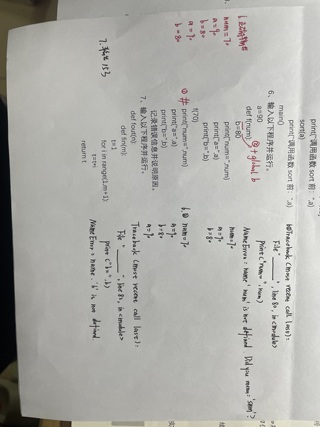 print("调用函数 sort 前 ",a)
sort(a)
print("调用函数 sort 前 ",a)
main()
6、输入以下程序并运行。
a=90
def f(num):
b=80
print("num=",num)
print("a=",a)
print("b=",b)
f(70)
print("num=",num)
print("a=",a)
print("b=",b)
记录错误信息并说明原因。
7、输入以下程序并运行。
def fout(n):
def fin(m):
t=1
for i in range(1,m+1):
t=t*i
return t
① 加 global b
① #
num=70
a=90
b=80
a=90
b=80
7. 153
6① Traceback (most recent call last):
File "______", line 80, in <module>
print("num=", num)
NameError: name 'num' is not defined. Did you mean: 'sum'?
num=70
a=90
b=80
6.② num=70
a=90
b=80
a=90
Traceback (most recent call last):
File "______", line 81, in <module>
print("b=", b)
NameError: name 'b' is not defined